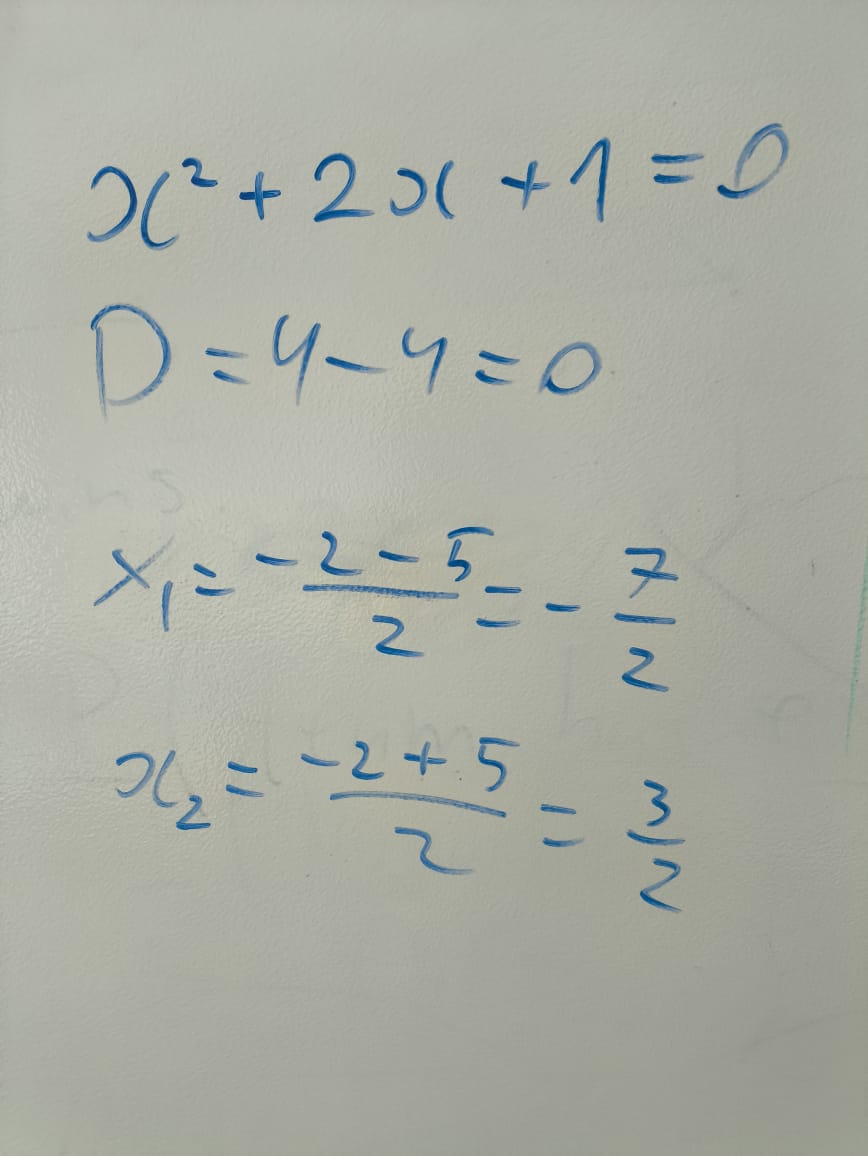 x² + 2x + 1 = 0
D = 4 - 4 = 0
x₁ = (-2 - 5)/2 = -7/2
x₂ = (-2 + 5)/2 = 3/2